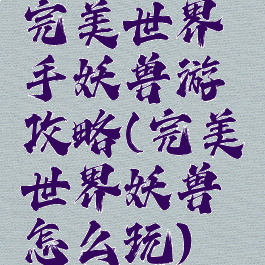 完美世界
手妖兽游
攻略(完美
世界妖兽
怎么玩)